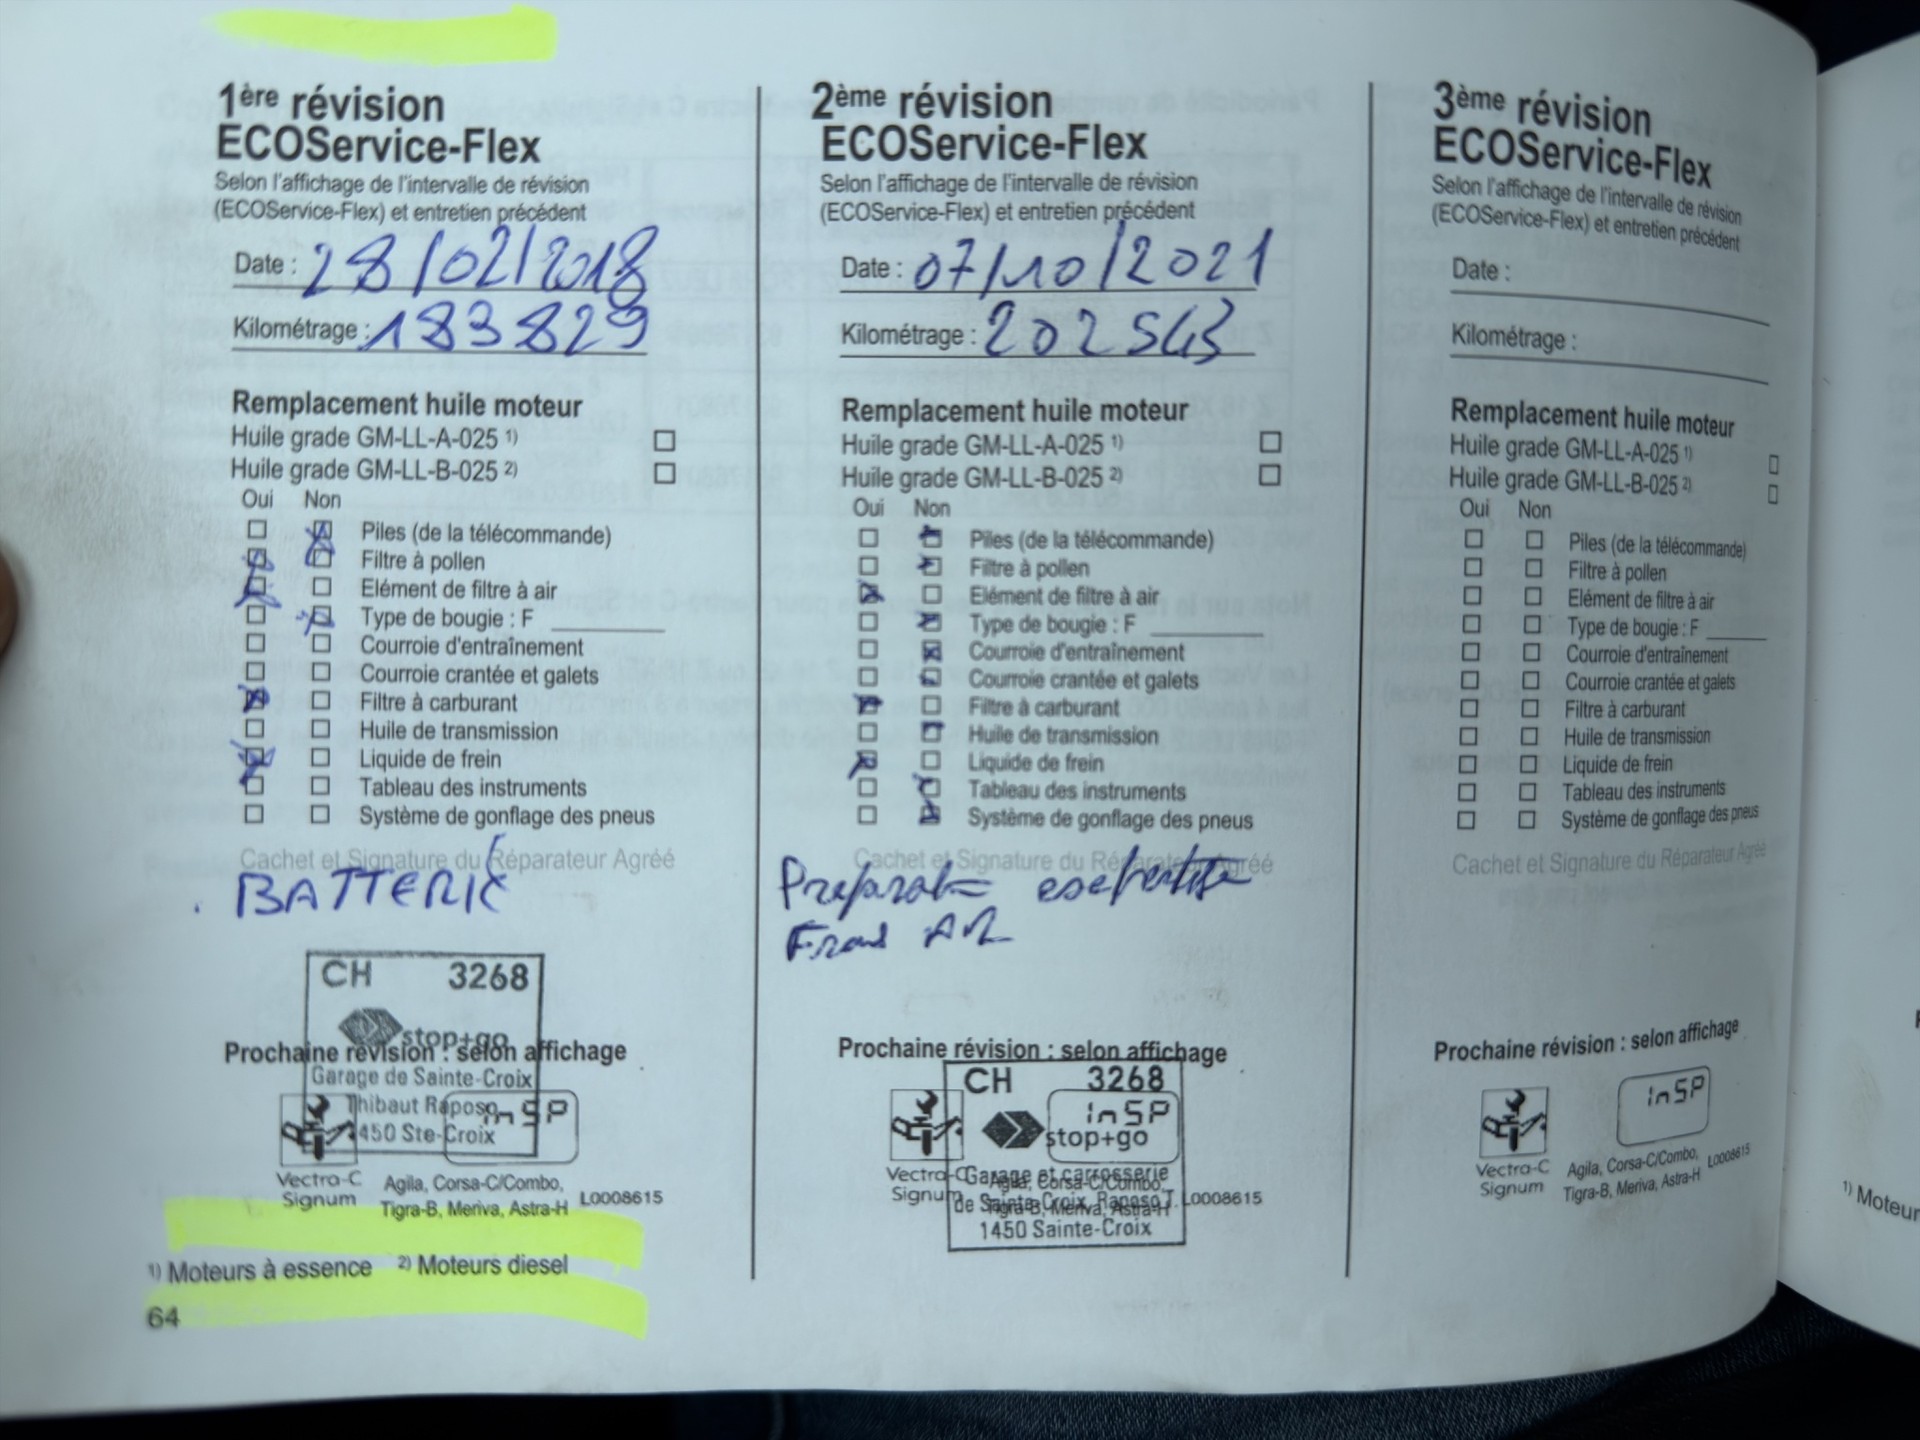 1ère révision
ECOService-Flex
Selon l'affichage de l'intervalle de révision
(ECOService-Flex) et entretien précédent
Date : 28/02/2018
Kilométrage : 183829
Remplacement huile moteur
Huile grade GM-LL-A-025 1)
Huile grade GM-LL-B-025 2)
Oui Non
Piles (de la télécommande)
Filtre à pollen
Elément de filtre à air
Type de bougie : F
Courroie d'entraînement
Courroie crantée et galets
Filtre à carburant
Huile de transmission
Liquide de frein
Tableau des instruments
Système de gonflage des pneus
Cachet et Signature du Réparateur Agréé
BATTERIE
CH 3268
stop+go
Prochaine révision : selon affichage
Garage de Sainte-Croix
Thibaut Raposo
1450 Ste-Croix
InSP
Vectra-C
Signum
Agila, Corsa-C/Combo,
Tigra-B, Meriva, Astra-H
L0008615
1) Moteurs à essence 2) Moteurs diesel
64
2ème révision
ECOService-Flex
Selon l'affichage de l'intervalle de révision
(ECOService-Flex) et entretien précédent
Date : 07/10/2021
Kilométrage : 202543
Remplacement huile moteur
Huile grade GM-LL-A-025 1)
Huile grade GM-LL-B-025 2)
Oui Non
Piles (de la télécommande)
Filtre à pollen
Elément de filtre à air
Type de bougie : F
Courroie d'entraînement
Courroie crantée et galets
Filtre à carburant
Huile de transmission
Liquide de frein
Tableau des instruments
Système de gonflage des pneus
Cachet et Signature du Réparateur Agréé
Prochaine révision : selon affichage
CH 3268
InSP
stop+go
Garage et carrosserie
de Sainte-Croix, Raposo T.
1450 Sainte-Croix
Vectra-C
Signum
Agila, Corsa-C/Combo,
Tigra-B, Meriva, Astra-H
L0008615
3ème révision
ECOService-Flex
Selon l'affichage de l'intervalle de révision
(ECOService-Flex) et entretien précédent
Date :
Kilométrage :
Remplacement huile moteur
Huile grade GM-LL-A-025 1)
Huile grade GM-LL-B-025 2)
Oui Non
Piles (de la télécommande)
Filtre à pollen
Elément de filtre à air
Type de bougie : F
Courroie d'entraînement
Courroie crantée et galets
Filtre à carburant
Huile de transmission
Liquide de frein
Tableau des instruments
Système de gonflage des pneus
Cachet et Signature du Réparateur Agréé
Prochaine révision : selon affichage
InSP
Vectra-C
Signum
Agila, Corsa-C/Combo,
Tigra-B, Meriva, Astra-H
L0008615
1) Moteur